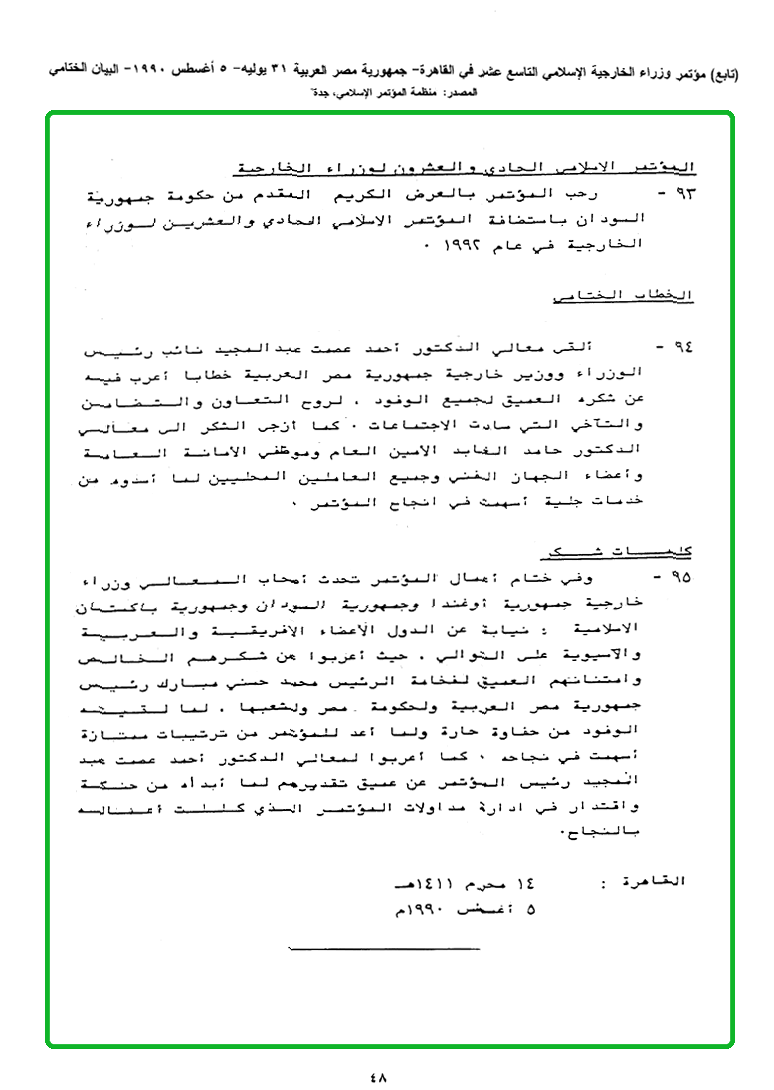 (تابع) مؤتمر وزراء الخارجية الإسلامي التاسع عشر في القاهرة- جمهورية مصر العربية ٣١ يوليه- ٥ أغسطس ١٩٩٠- البيان الختامي
المصدر: منظمة المؤتمر الإسلامي، جدة"
المؤتمر الاسلامي الحادي والعشرون لوزراء الخارجية
٩٣ - رحب المؤتمر بالعرض الكريم المقدم من حكومة جمهورية
السودان باستضافة المؤتمر الاسلامي الحادي والعشرين لوزراء
الخارجية في عام ١٩٩٢ ٠
الخطاب الختامي
٩٤ - ألقى معالي الدكتور أحمد عصمت عبدالمجيد نائب رئيس
الوزراء ووزير خارجية جمهورية مصر العربية خطابا أعرب فيه
عن شكره العميق لجميع الوفود ، لروح التعاون والتضامن
والتآخي التي سادت الاجتماعات ٠ كما أزجى الشكر الى معالي
الدكتور حامد الغابد الامين العام وموظفي الامانة العامة
وأعضاء الجهاز الفني وجميع العاملين المحليين لما أسدوه من
خدمات جلية أسهمت في انجاح المؤتمر ٠
كلمات شكر
٩٥ - وفي ختام أعمال المؤتمر تحدث أصحاب المعالي وزراء
خارجية جمهورية أوغندا وجمهورية السودان وجمهورية باكستان
الاسلامية : نيابة عن الدول الأعضاء الافريقية والعربية
والآسيوية على التوالي ، حيث أعربوا عن شكرهم الخالص
وامتنانهم العميق لفخامة الرئيس محمد حسني مبارك رئيس
جمهورية مصر العربية ولحكومة مصر ولشعبها ، لما لقيته
الوفود من حفاوة حارة ولما أعد للمؤتمر من ترتيبات ممتازة
أسهمت في نجاحه ٠ كما أعربوا لمعالي الدكتور أحمد عصمت عبد
المجيد رئيس المؤتمر عن عميق تقديرهم لما أبداه من حنكة
واقتدار في ادارة مداولات المؤتمر الذي كللت أعماله
بالنجاح٠
القاهرة : ١٤ محرم ١٤١١هـ
٥ أغسطس ١٩٩٠م
٤٨